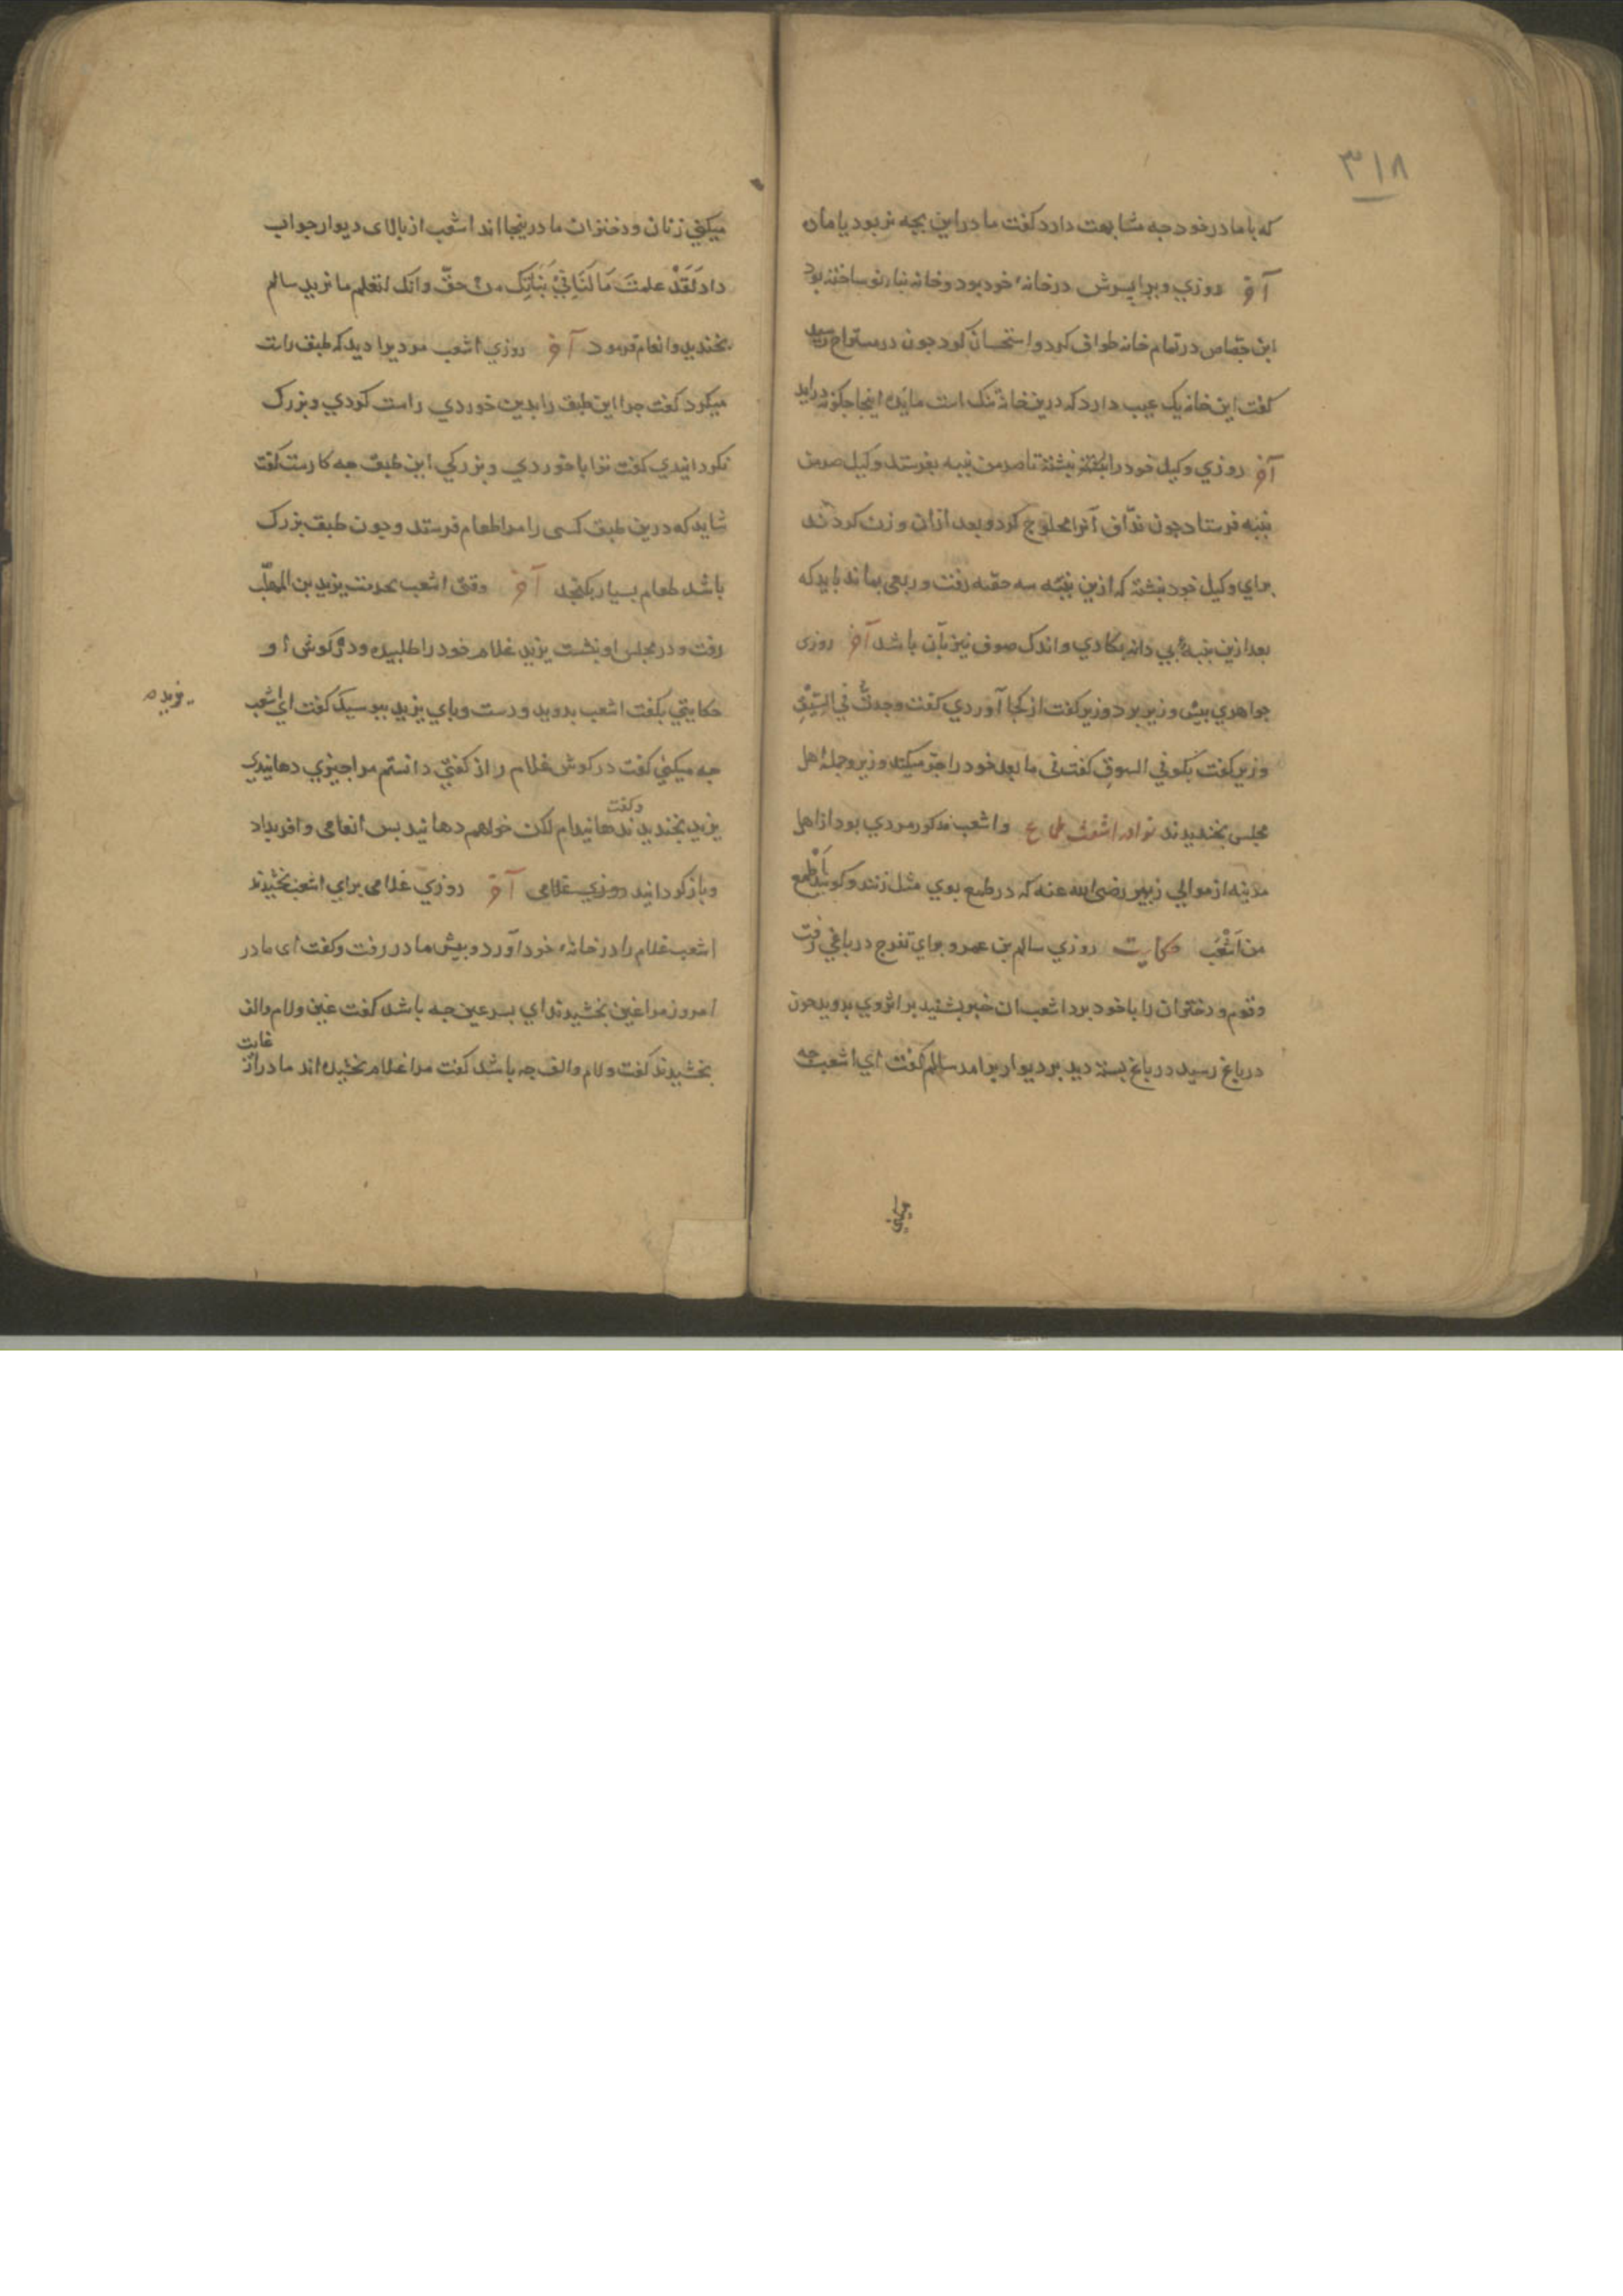 ۳۱۸
که با مادر خود جه مشابهت دارد کفت مادر این بچه نر بود یا مادن
آخر روزي وبرا پسرش در خانهٔ خود بود وخانه نو ساخته بود
ابن جصاص در تمام خانه طواف کرد و استحسان کرد جون در مستراح رسید
کفت این خانه یک عیب دارد که درین خانه تنک است مایده اینجا جکونه دراید
آخر روزي وکیل خود را نبشته تا صد من پنبه بفرستد وکیل صد من
پنبه فرستاد جون ندّاف آنرا محلوج کرد و بعد ازان وزن کردند
براي وکیل خود نبشته که ازین پنبه سه حصّه رفت و ربعی بماند باید که
بعد ازین پنبهٔ بي دانه بکاري واندک صوف نیز بآن باشد آخر روزی
جواهري بیش وزیر برد وزیر کفت از کجا آوردي کفت وجدتُ في
وزیر کفت بکو في السوقِ کفت في ما بعد خود را جر میکند وزیر وجملهٔ اهل
مجلس بخندیدند نوادر اشعب طماع واشعب مذکور مردي بود از اهل
مدینه از موالي زبیر رضی الله عنه که در طمع بوي مثل زنند و کویند أطمع
من أشعب حکایت روزي سالم بن عمر و براي تفرج در باغي رفت
وقوم و دختران را با خود برد اشعب ان خبر بشنید بر اثر وي بدوید جون
در باغ رسید در باغ بسته دید بر دیوار برامد سالم کفت اي اشعب جه
میکني زنان ودختران ما درینجا اند اشعب از بالای دیوار جواب
داد لَقَدْ علمتَ مَا لَنَا فِيْ بَنَاتِكَ مِنْ حقٍّ وانك لتعلم ما نريد سالم
بخندید و انعام فرمود آخر روزي اشعب مردیرا دید که طبق راست
میکرد کفت جرا این طبق را بدین خوردي راست کردي وبزرک
نکردانیدي کفت ترا با خوردي وبزرکي این طبق جه کارست کفت
شاید که درین طبق کسی را مرا طعام فرستد وجون طبق بزرک
باشد طعام بسیار بکنجد آخر وقتی اشعب بحدمت یزید بن المهلّب
رفت و در مجلس او نشست یزید غلام خود را طلبید و در کوش او
حکایتي بکفت اشعب بدوید و دست و پاي یزید ببوسید کفت اي اشعب
یزیده
جه میکني کفت در کوش غلام راز کفتي دانستم مرا جیزي دهانیدي
یزید بخندید وکفت ندهانیدام لکن خواهم دهانید بس انعامی وافر بداد
وباز کردانید روزي غلامی آخر روزي غلامی براي اشعب بخشیدند
اشعب غلام را در خانهٔ خود آورد و بیش مادر رفت وکفت ای مادر
امروز مرا غین بخشیدند اي بسر غین جه باشد کفت غین ولام والف
بخشیدند کفت ولام والف جه باشد کفت مرا غلام بخشیده اند مادر از غایت